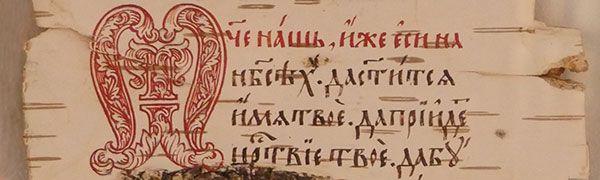 Ѿче на́шь, и҆́же е҆сѝ на
нб҃сѣ́хъ. да ст҃и́тсѧ
и҆́мѧ твоѐ. да прїи́детъ
црⷭ҇твїе твоѐ. да бꙋ́